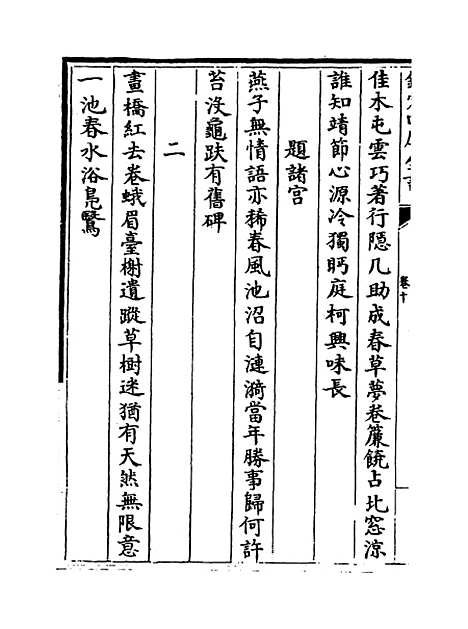 佳木屯雲巧著行隠几助成春草夢卷簾饒占北窓涼
誰知靖節心源冷獨眄庭柯興味長
題諸宫
燕子無情語亦稀春風池沼自漣漪當年勝事歸何許
苔没龜趺有舊碑
二
畫橋紅去卷蛾眉臺榭遺蹤草樹迷猶有天然無限意
一池春水浴鳬鷖
卷十